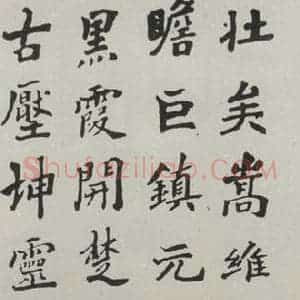 壯矣嵩維
瞻巨鎮元
黑霞開楚
古壓坤靈
Shufaziliao.COM